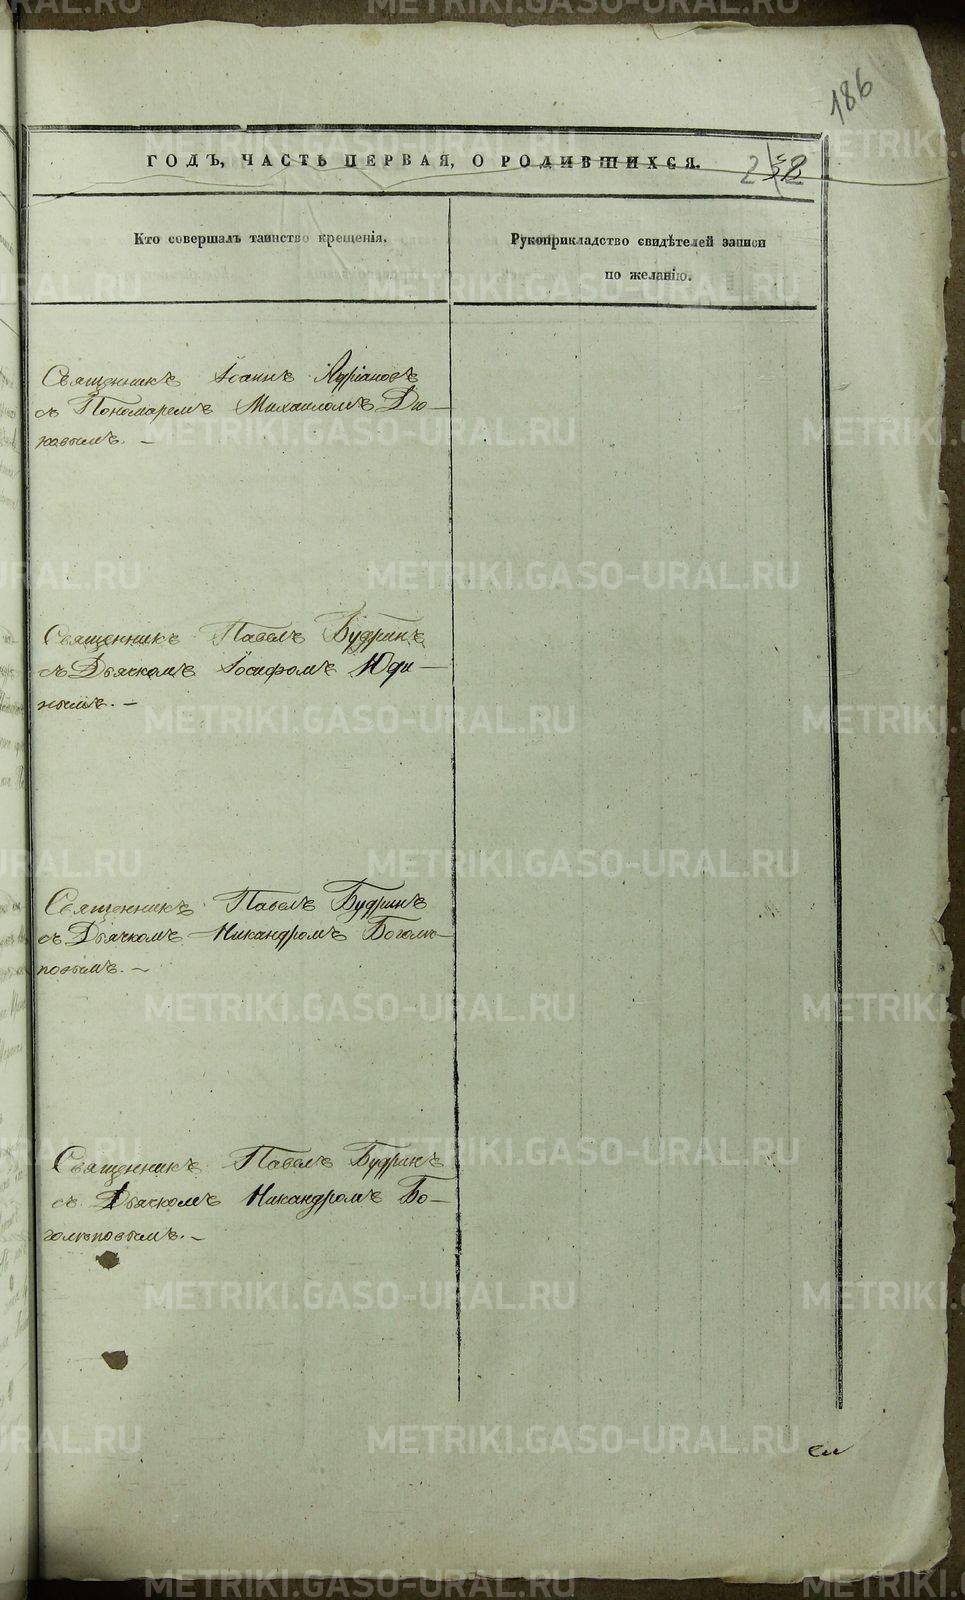 186
ГОДЪ, ЧАСТЬ ПЕРВАЯ, О РОДИВШИХСЯ.
Кто совершалъ таинство крещенія.
Рукоприкладство свидѣтелей записи
по желанію.
Священникъ Іоаннъ Адріановъ
съ Пономаремъ Михаиломъ Дю-
ковымъ. -
Священникъ Павелъ Будринъ
съ Дьячкомъ Іосифомъ Юди-
нымъ. -
Священникъ Павелъ Будринъ
съ Дьячкомъ Никандромъ Боголѣ-
повымъ. -
Священникъ Павелъ Будринъ
съ Дьячкомъ Никандромъ Бо-
голѣповымъ. -
METRIKI.GASO-URAL.RU